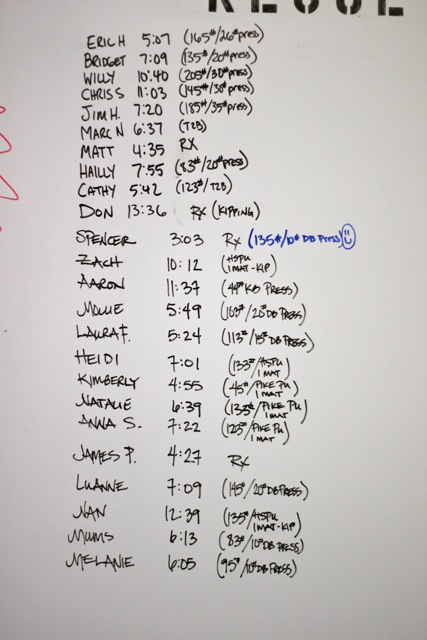 ERIC H 5:07 (165#/26# press)
BRIDGET 7:09 (135#/20# press)
WILLY 10:40 (205#/30# press)
CHRIS S 11:03 (145#/30# press)
JIM H. 7:20 (185#/35# press)
MARC N 6:37 (T2B)
MATT 4:35 RX
HAILLY 7:55 (83#/20# press)
CATHY 5:42 (123#/T2B)
DON 13:36 RX (KIPPING)
SPENCER 3:03 Rx (135#/10# DB Press)
ZACH 10:12 (HSPU 1 MAT-KIP)
AARON 11:37 (44# KB PRESS)
MOLLIE 5:49 (103#/20# DB PRESS)
LAURA F. 5:24 (113#/15# DB PRESS)
HEIDI 7:01 (133#/HSPU 1 MAT)
KIMBERLY 4:55 (45#/PIKE PU 1 MAT)
NATALIE 6:39 (135#/PIKE PU 1 MAT)
ANNA S. 7:22 (125#/PIKE PU 1 MAT)
JAMES P. 4:27 RX
LUANNE 7:09 (145#/20# DB PRESS)
NAN 12:39 (135#/HSPU 1 MAT-KIP)
MUMS 6:13 (83#/10# DB PRESS)
MELANIE 6:05 (95#/10# DB PRESS)